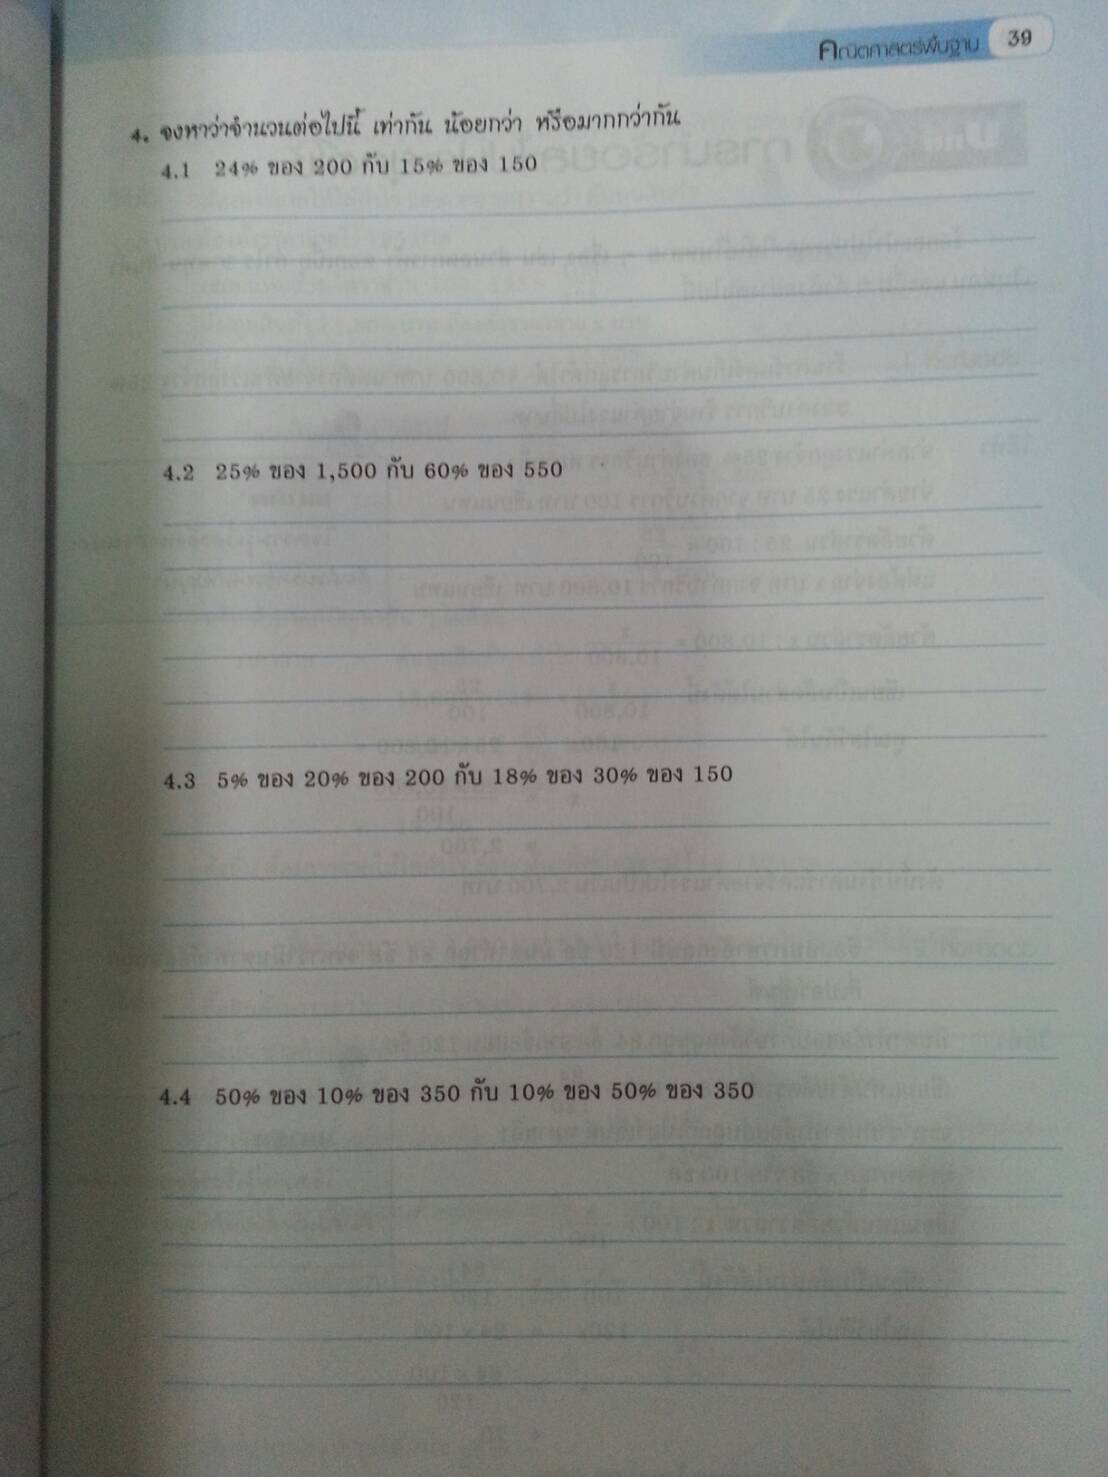 คณิตศาสตร์พื้นฐาน 39
4. จงหาว่าจำนวนต่อไปนี้ เท่ากัน น้อยกว่า หรือมากกว่ากัน
4.1 24% ของ 200 กับ 15% ของ 150
4.2 25% ของ 1,500 กับ 60% ของ 550
4.3 5% ของ 20% ของ 200 กับ 18% ของ 30% ของ 150
4.4 50% ของ 10% ของ 350 กับ 10% ของ 50% ของ 350